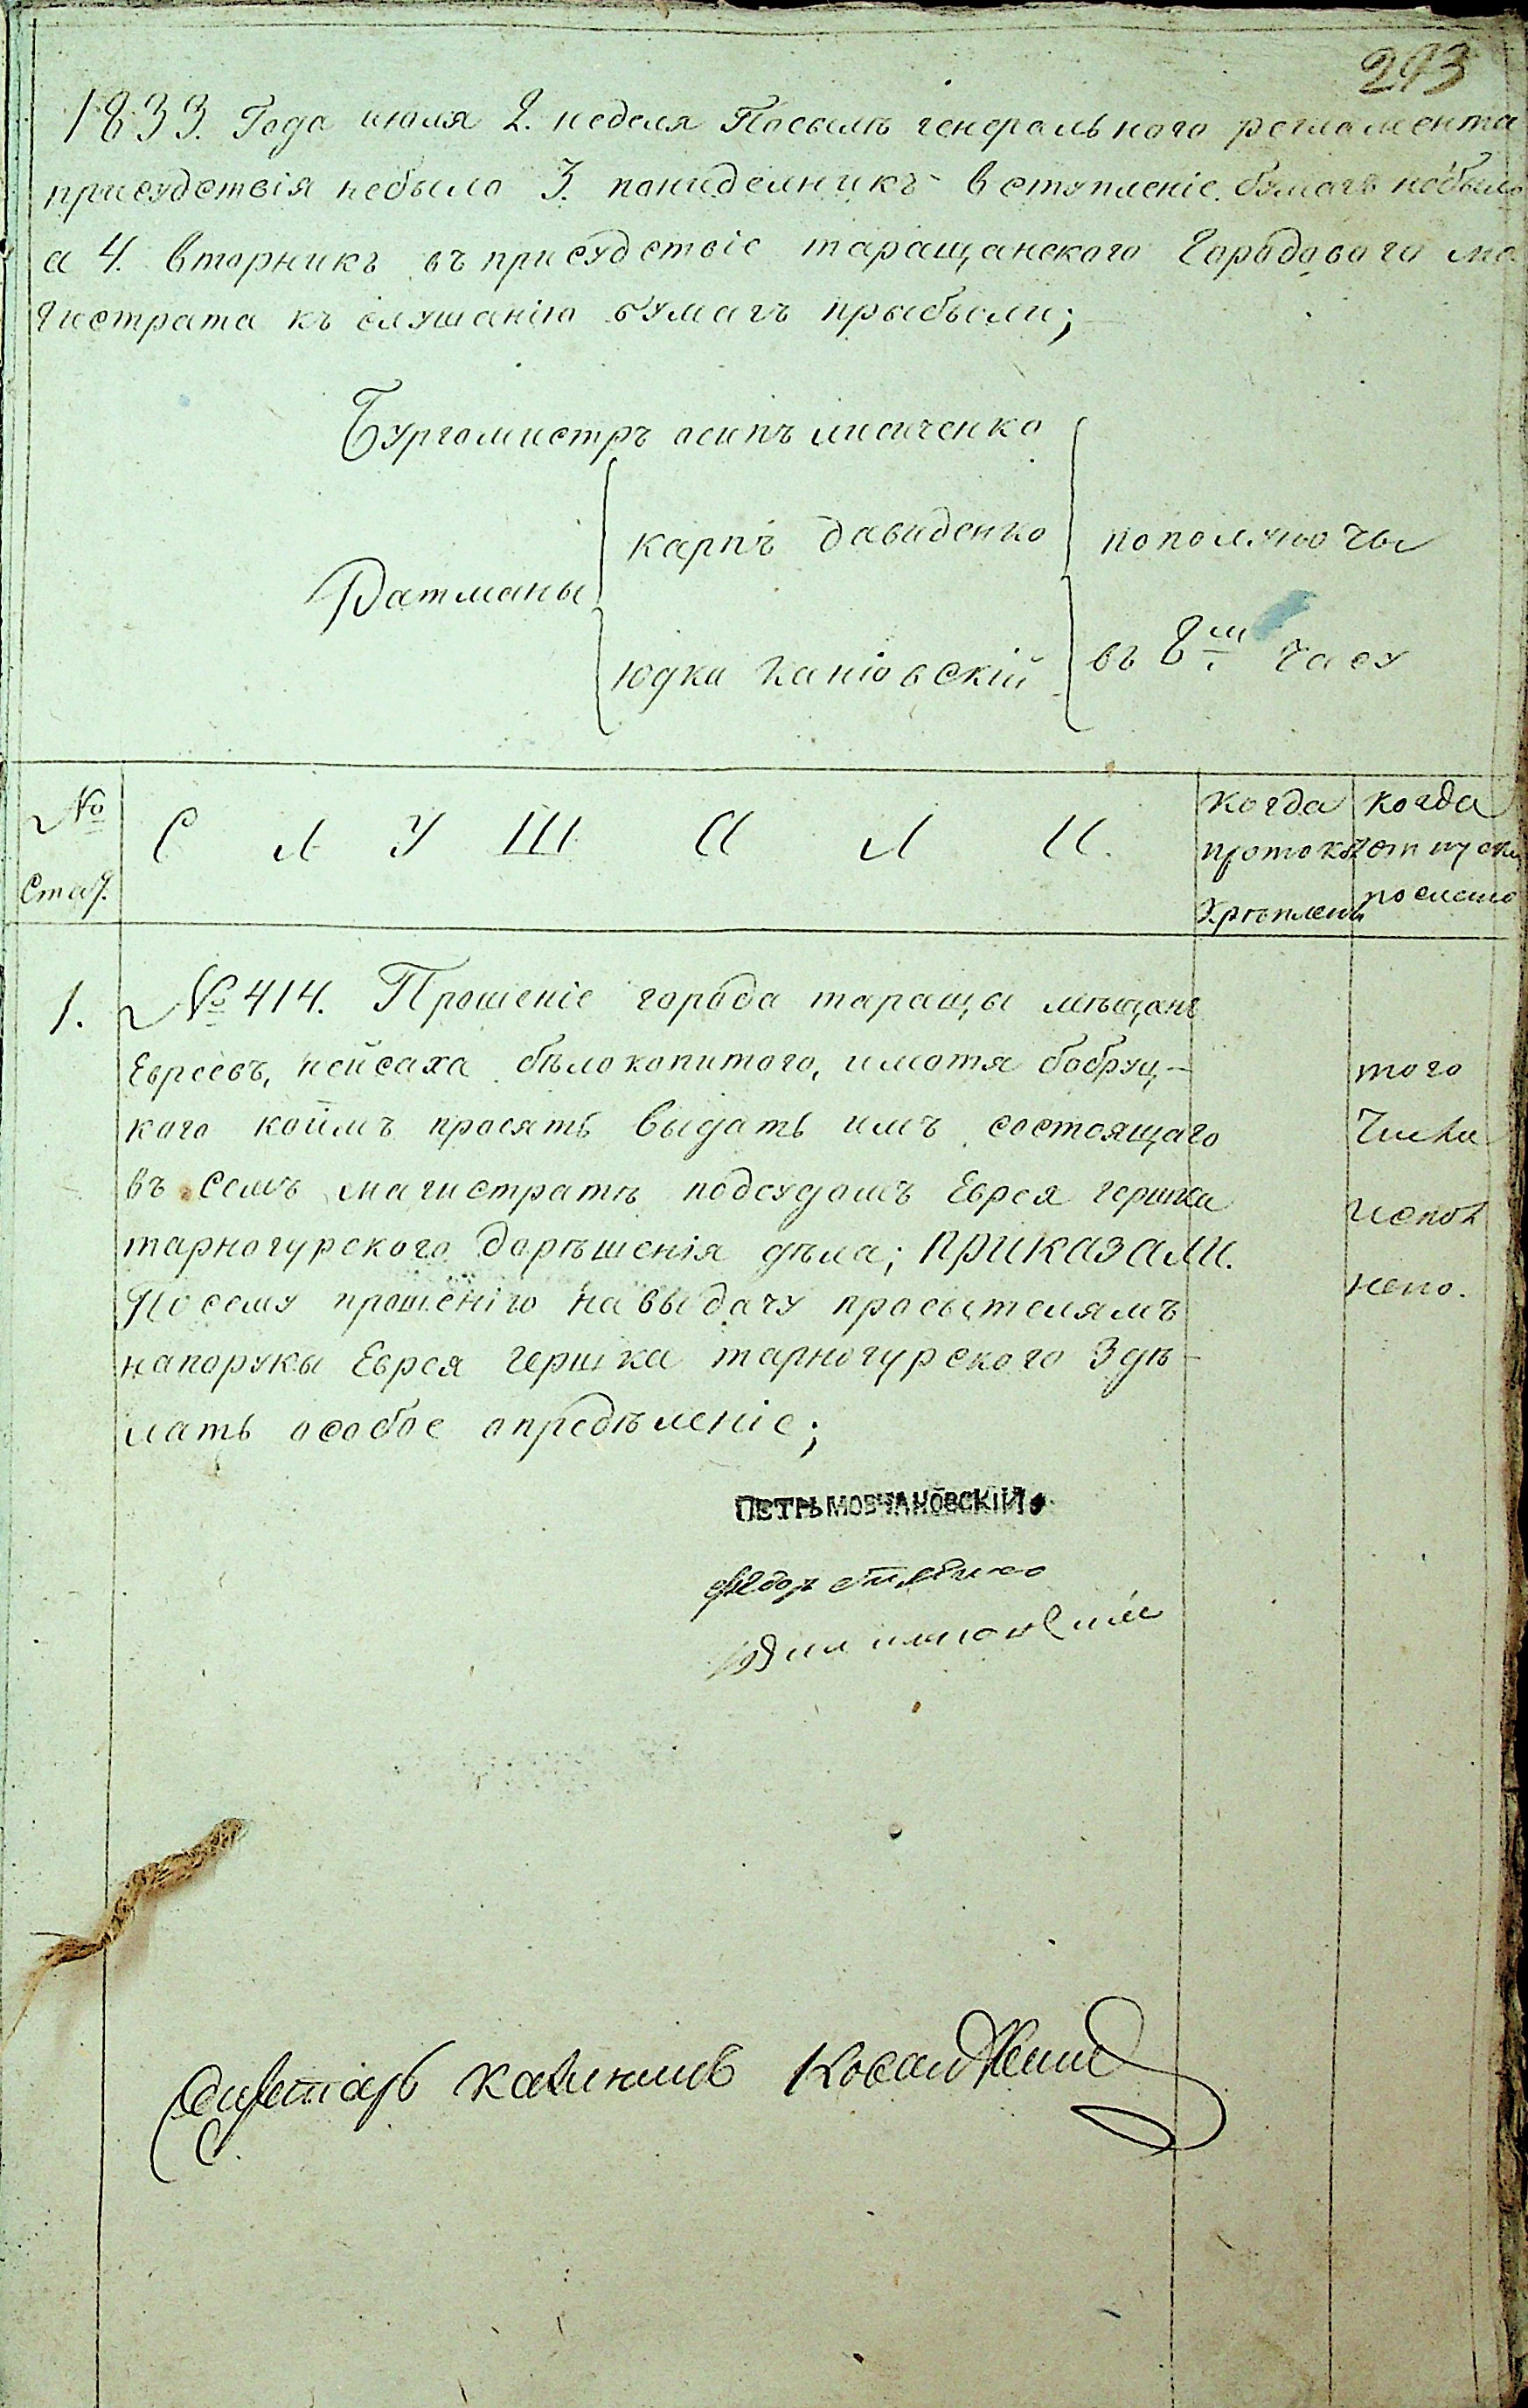 293
1833. Года июля 2. неделя Посылѣ генерального регламента
присудствія небыло 3. пониделникъ вступленіе бумагъ небыло
а 4. вторникъ въ присудствіе таращанского Городового ма
гистрата къ слушанію бумагъ прыбыли;
Бургомистръ осипъ лисиченко
Ратманы
карпъ давиденко
юдка каніовскій
пополуночы
въ 8м часу
№ Стат.
С Л У Ш А Л И.
когда протокол Укрѣпленъ
когда отпускъ посланъ
1.
№ 414. Прошеніе города таращы мѣщанъ
Евреевъ, пейсаха бѣлокопитого, имотя бобруц-
кого коимъ просятъ выдать имъ состоящаго
въ семъ магистратѣ подсудомъ Еврея гершка
тарногурского дорѣшенія дѣла; приказали.
По сему прошенію на выдачу просытелямъ
напоруки Еврея гершка тарногурского Здѣ-
лать особое опредѣленіе;
того
числа
испол
нено.
ПЕТРЪ МОВЧАНОВСКІЙ
Федор
Секретарь